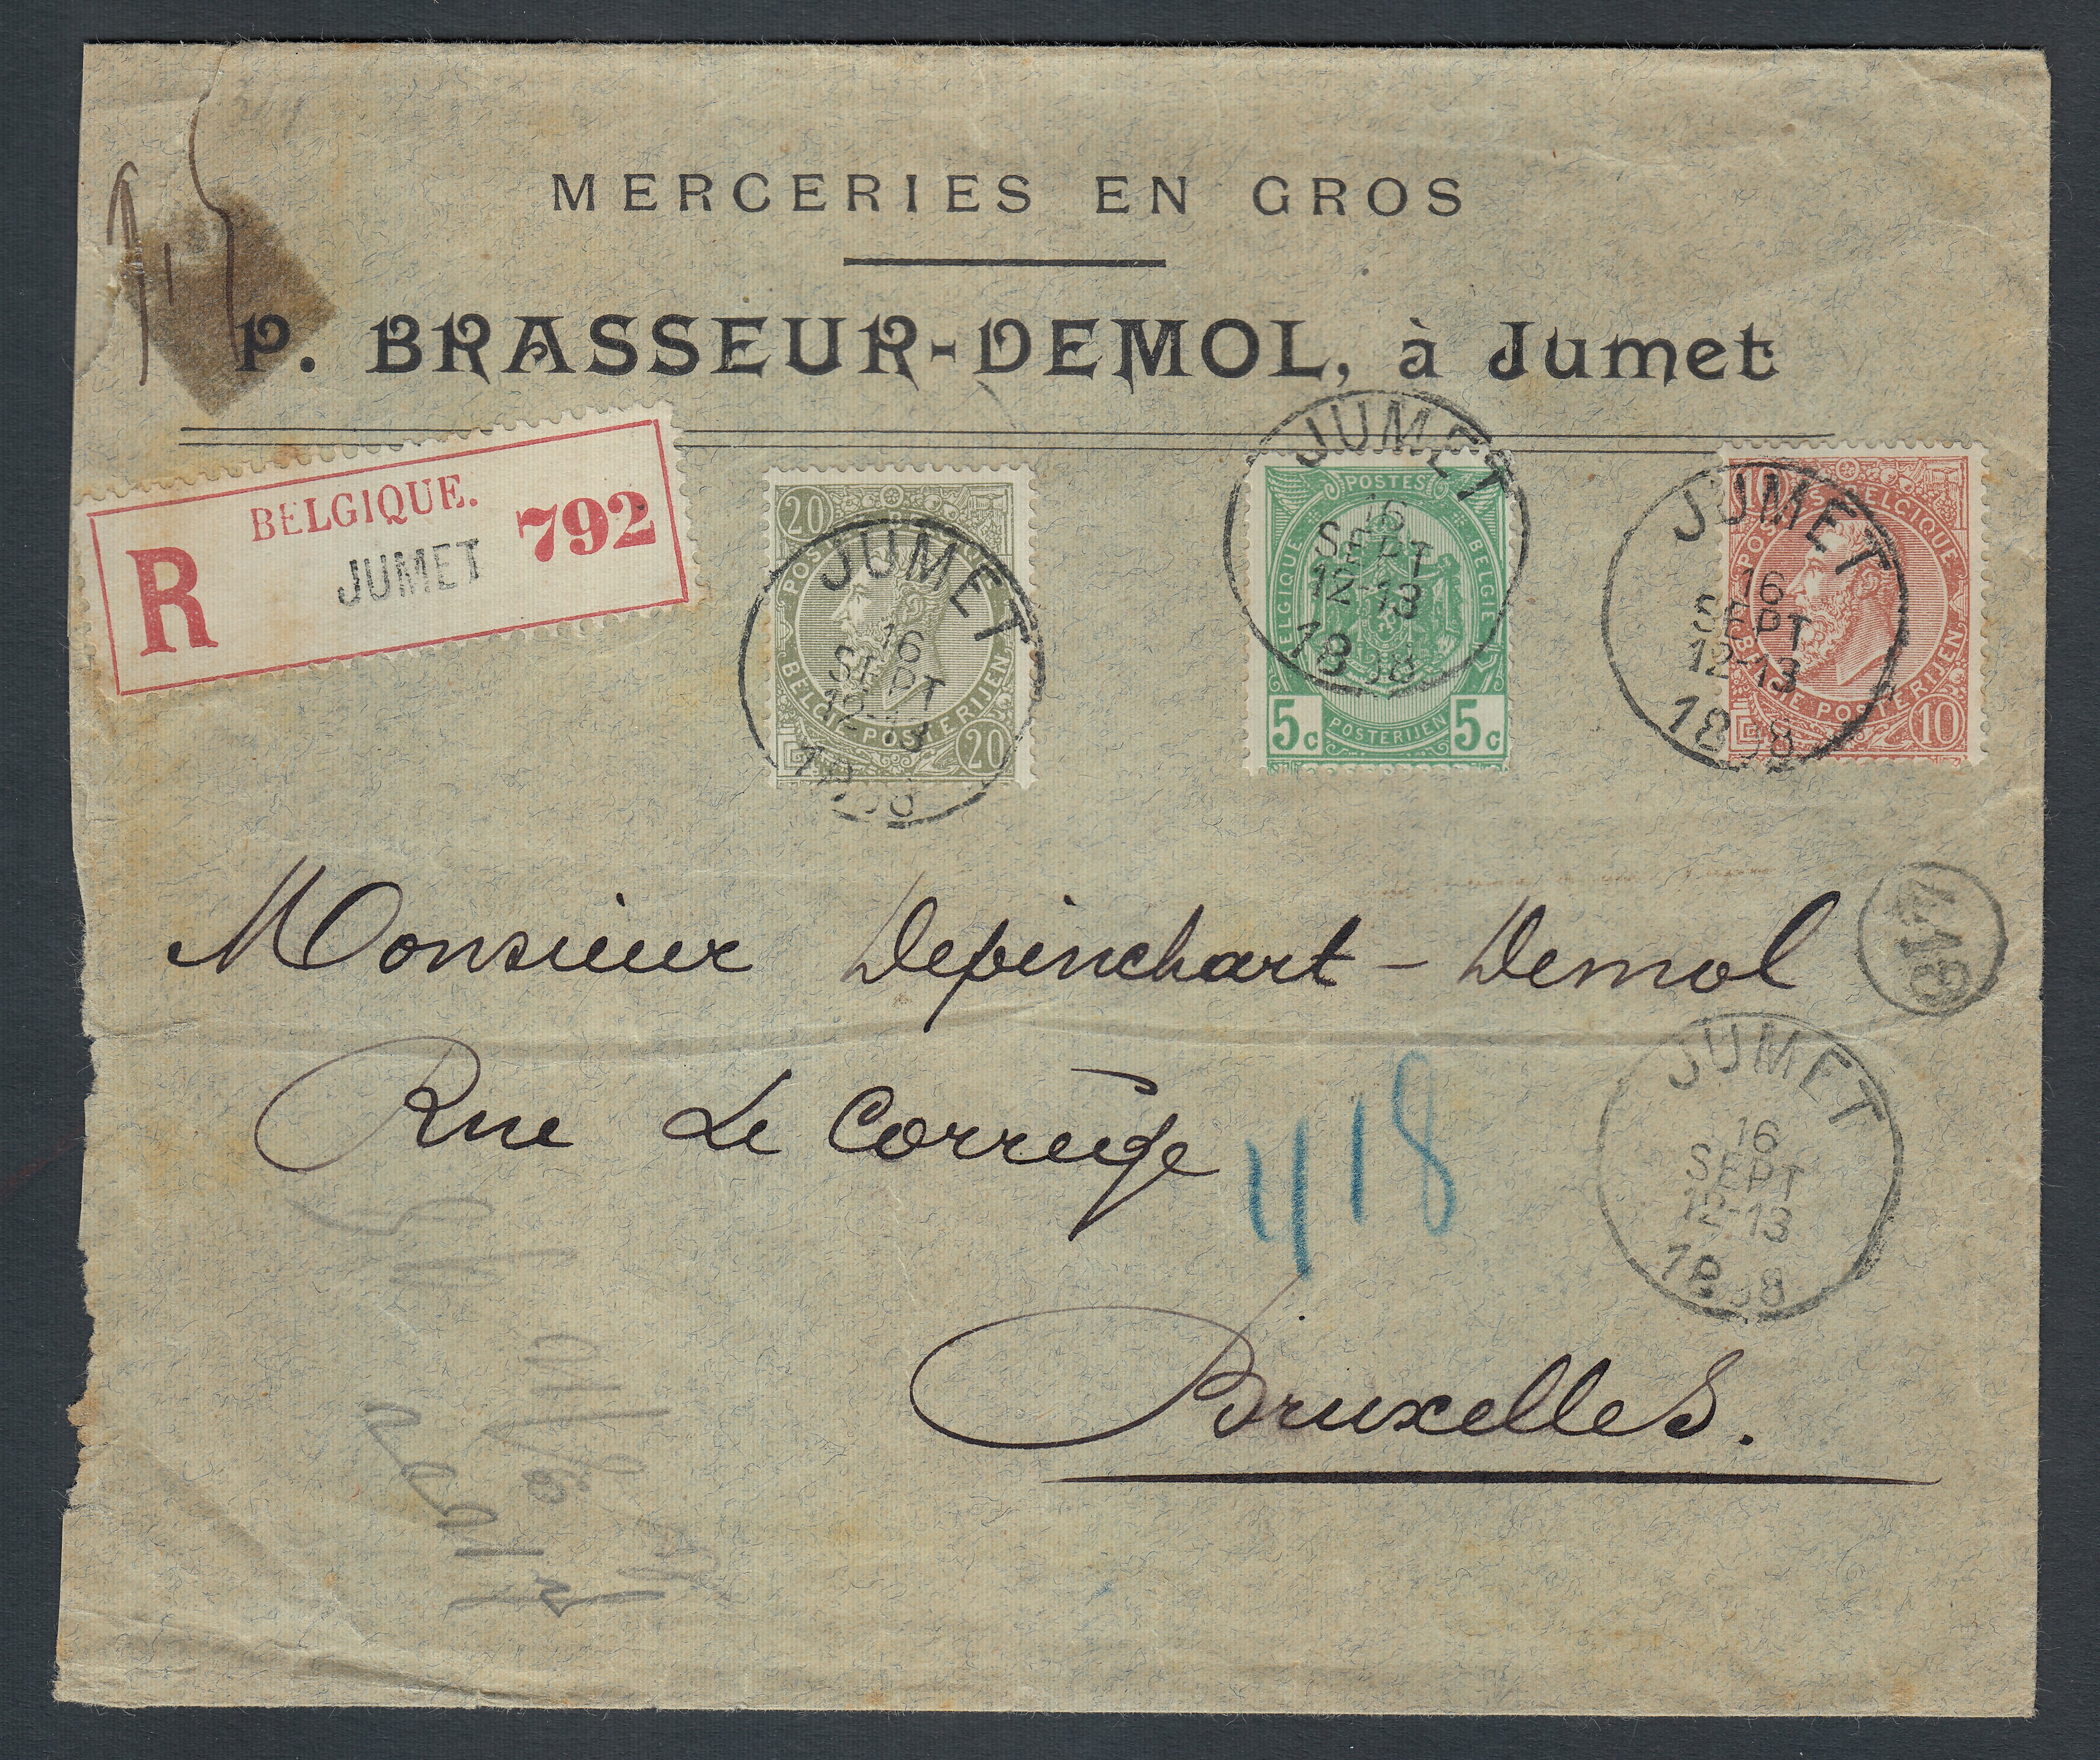 MERCERIES EN GROS
P. BRASSEUR-DEMOL, à Jumet
BELGIQUE.
R JUMET 792
20 20
POSTES BELGIQUE
BELGIE POSTERIJEN
JUMET
16
SEPT
12-13
POSTES
BELGIQUE BELGIE
POSTERIJEN
5c 5c
JUMET
16
SEPT
12-13
1898
10 10
POSTES BELGIQUE
BELGIE POSTERIJEN
JUMET
16
SEPT
12-13
1898
Monsieur Depinchart - Demol
Rue Le Corrège
418
JUMET
16
SEPT
12-13
1898
Bruxelles.